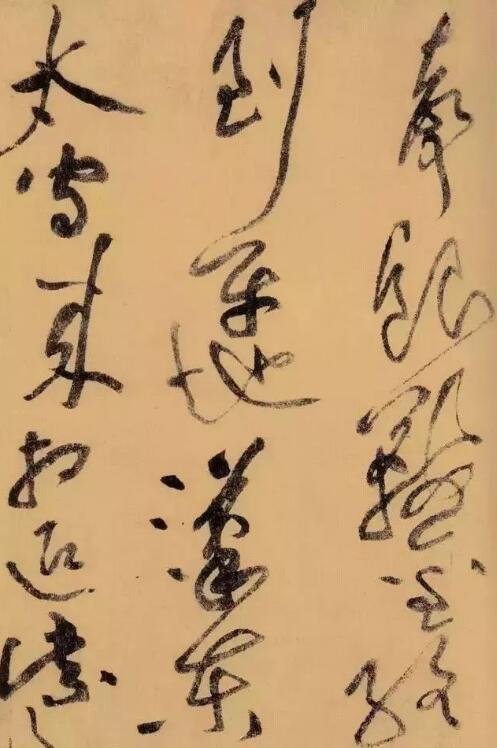 聲銀鞍金絡
到平地漢東
太守來相迎紫